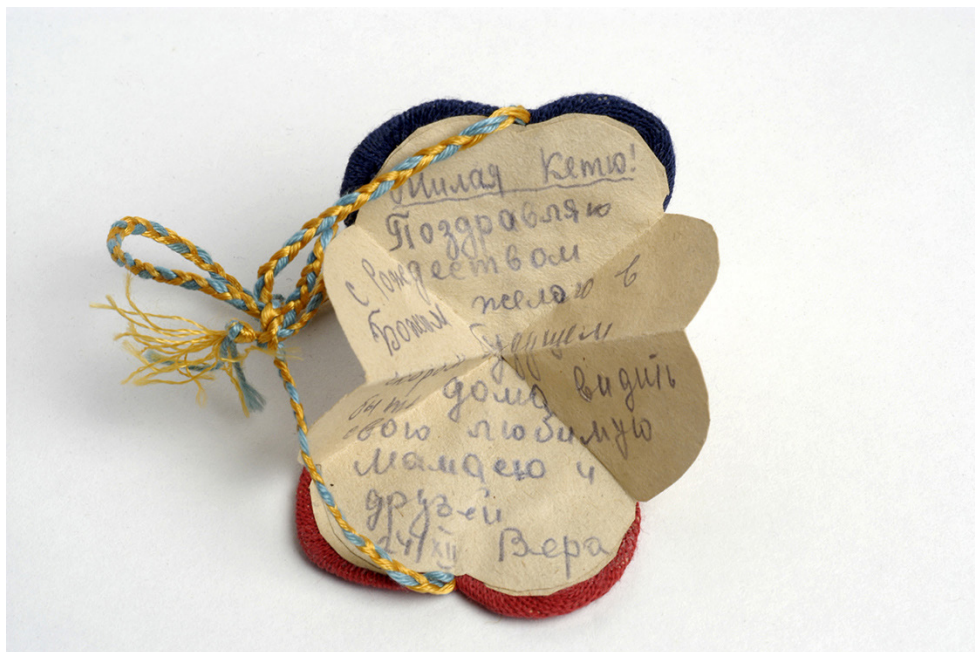 Милая Кетю!
Поздравляю
с Рождеством
Божим желаю в
будущем
быть дома видить
свою любимую
мамдею и
друзей
24/XII Вера